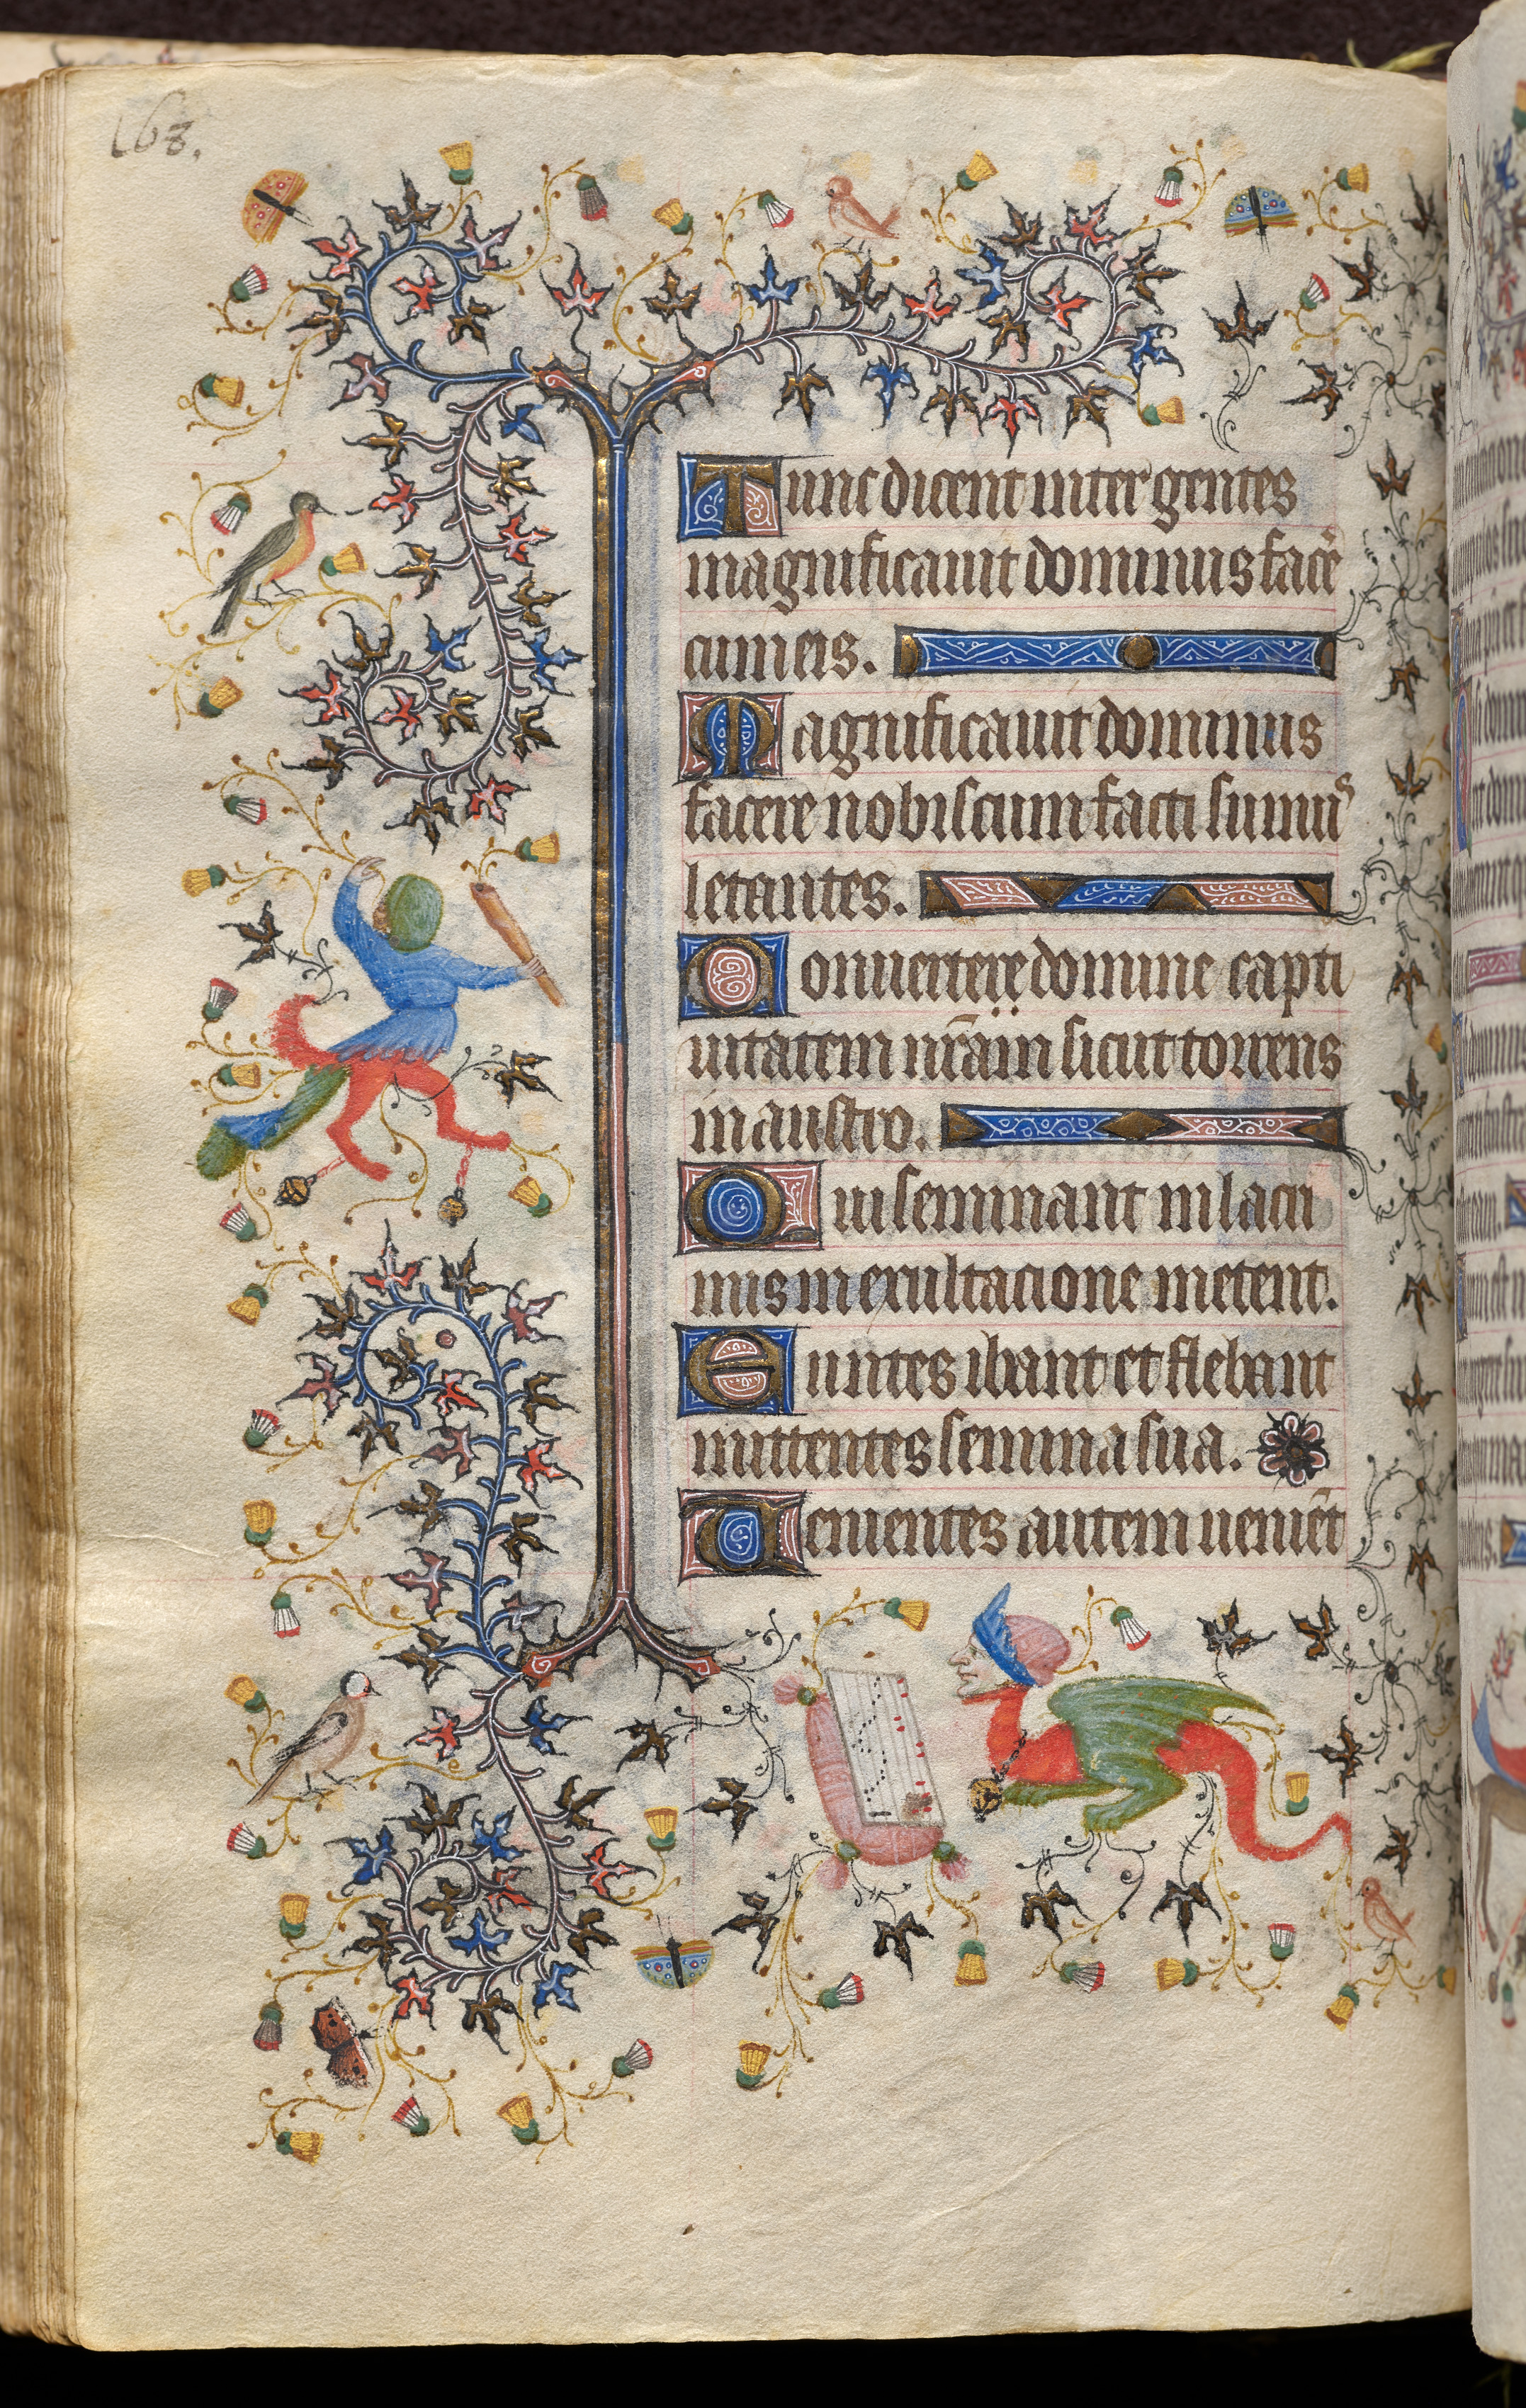 168.
Tunc dicent inter gentes
magnificavit dominus facẽ
cum eis.
Magnificavit dominus
facere nobiscum facti sumus
letantes.
Convertere domine capti
vitatem nr̄am sicut torrens
in austro.
Qui seminant in lacri
mis in exultacione metent.
Euntes ibant et flebant
mittentes semina sua.
Venientes autem veniēt